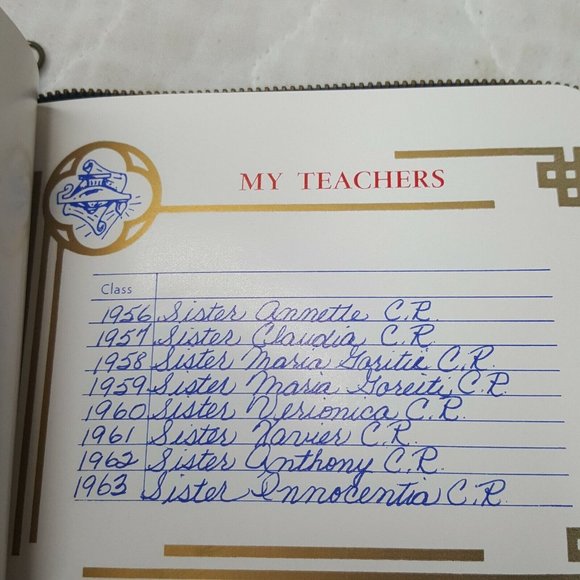 MY TEACHERS
Class
1956 Sister Annette C.R.
1957 Sister Claudia C.R.
1958 Sister Maria Goritii C.R.
1959 Sister Maria Goreiti C.R.
1960 Sister Verionica C.R.
1961 Sister Xavier C.R.
1962 Sister Anthony C.R.
1963 Sister Innocentia C.R.